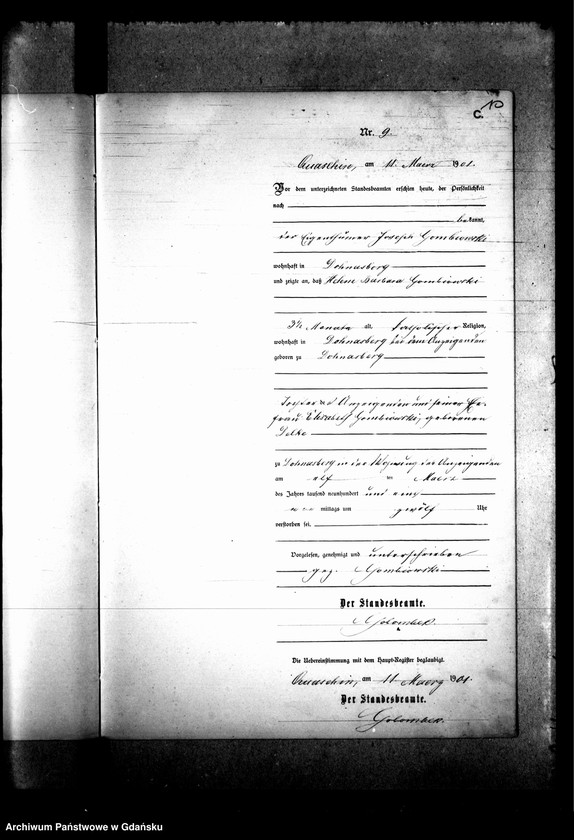 C.
Nr. 9.
Quaschin, am 11. Maerz 1901.
Vor dem unterzeichneten Standesbeamten erschien heute, der Persönlichkeit
nach
bekannt,
der Eigenthümer Joseph Gombiowski
wohnhaft in Dohnasberg
und zeigte an, daß Helene Barbara Gombiowski
Monate alt, katholischer Religion,
wohnhaft in Dohnasberg bei dem Anzeigenden
geboren zu Dohnasberg
Tochter des Anzeigenden und seiner Ehe-
frau Elisabeth Gombiowski, geborenen
zu Dohnasberg in der Wohnung des Anzeigenden
am elf ten Maerz
des Jahres tausend neunhundert und eins
mittags um zwölf Uhr
verstorben sei.
Vorgelesen, genehmigt und unterschrieben
gez. Gombiowski
Der Standesbeamte.
Golombek.
Die Uebereinstimmung mit dem Haupt-Register beglaubigt.
Quaschin, am 11. Maerz 1901.
Der Standesbeamte.
Golombek.
Archiwum Państwowe w Gdańsku